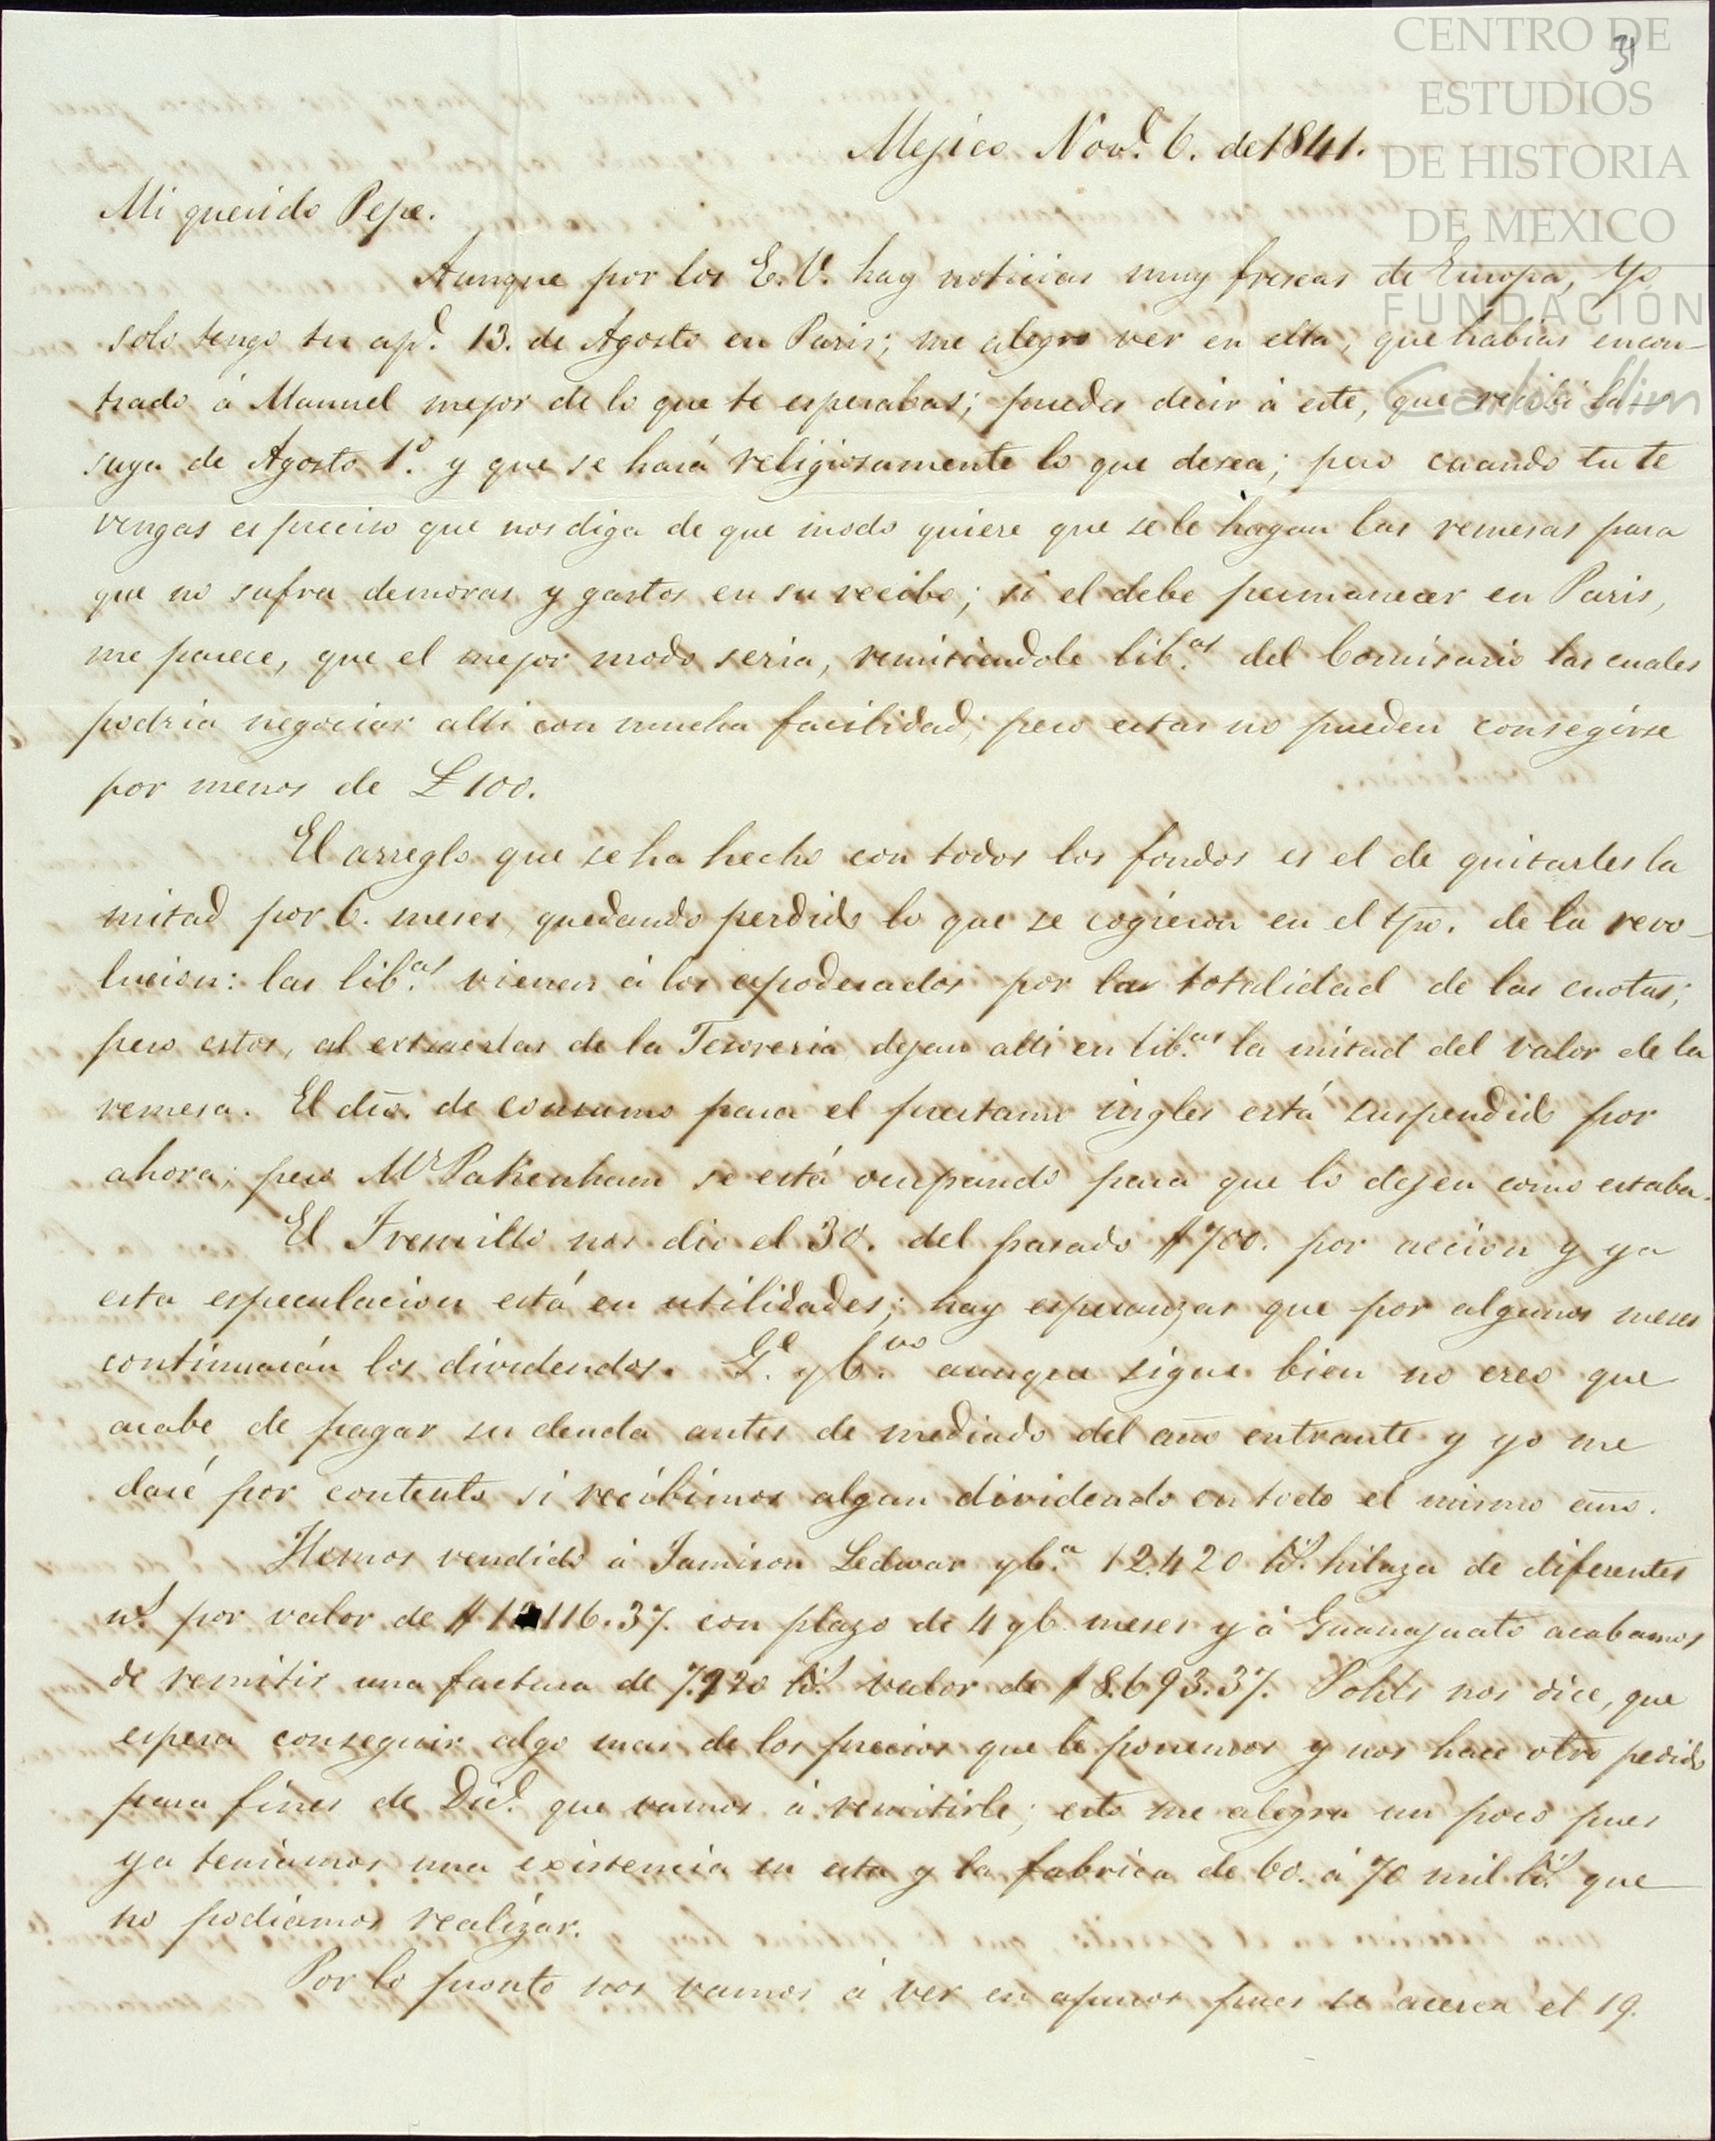 CENTRO DE
ESTUDIOS
DE HISTORIA
DE MEXICO
FUNDACIÓN
Carlos Slim
31
Mejico Nov.e 6. de 1841.
Mi querido Pepe.
Aunque por los E.U. hay noticias muy frescas de Europa, yo
solo tengo tu ap.e 13. de Agosto en Paris; me alegro ver en ella, que habias encon-
trado á Manuel mejor de lo que te esperabas; puedes decir á este, que recibi la
suya de Agosto 1.o y que se hará religiosamente lo que desea; pero cuando tu te
vengas es preciso que nos diga de que modo quiere que se le hagan las remesas para
que no sufra demoras y gastos en su recibo; si el debe permanecer en Paris,
me parece, que el mejor modo seria, remitiendole lib.as del Comisario las cuales
podria negociar alli con mucha facilidad; pero estas no pueden consegirse
por menos de £100.
El arreglo que se ha hecho con todos los fondos es el de quitarles la
mitad por 6. meses, quedando perdido lo que se cogieron en el tpo. de la revo-
lucion: las lib.as vienen á los apoderados por la totalidad de las cuotas;
pero estos, al extraerlas de la Tesoreria, dejan alli en lib.as la mitad del valor de la
remesa. El dro. de consumo para el prestamo ingles está suspendido por
ahora; pero Mr Pakenham se está ocupando para que lo dejen como estaba.
El Fresnillo nos dio el 30. del pasado $700. por accion y ya
esta especulacion está en utilidades; hay esperanzas que por algunos meses
continuarán los dividendos. G.e y C.vo aunque sigue bien no creo que
acabe de pagar su deuda antes de mediado del año entrante y yo me
daré por contento si recibimos algun dividendo en todo el mismo año.
Hemos vendido á Jamison Ledwar y C.a 12.420 lb.s hilaza de diferentes
n.s por valor de 116.37. con plazo de 4 y 6 meses y á Guanajuato acabamos
de remitir una factura de 7.920 lb.s valor de $8.693.37. Pohls nos dice, que
espera conseguir algo mas de los precios que le ponemos y nos hace otro pedido
para fines de Dic.e que vamos á remitirle; esto me alegra un poco pues
ya teniamos una existencia en esta y la fabrica de 60. á 70 mil lb.s que
no podiamos realizar.
Por lo pronto nos vamos á ver en apuros pues se acerca el 19.